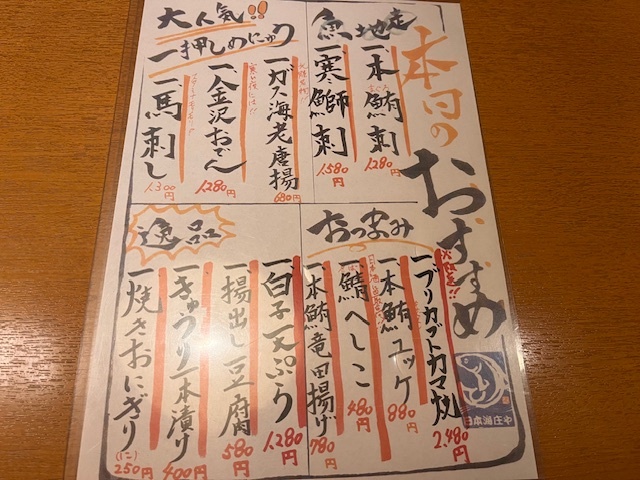 本日の
おすすめ
魚地走
一本鮪刺
1,280円
一寒鰤刺
1,580円
大人気!!
一押しめにゅう
一ガス海老唐揚
680円
一人金沢おでん
1,280円
一馬刺し
1,300円
おつまみ
一ブリカブトカマ焼
2,480円
一本鮪ユッケ
880円
一鯖へしこ
480円
一本鮪竜田揚げ
780円
逸品
一白子天ぷら
1,280円
一揚出し豆腐
580円
一きゅうり一本漬け
400円
一焼きおにぎり
(一コ)
250円
日本海庄や